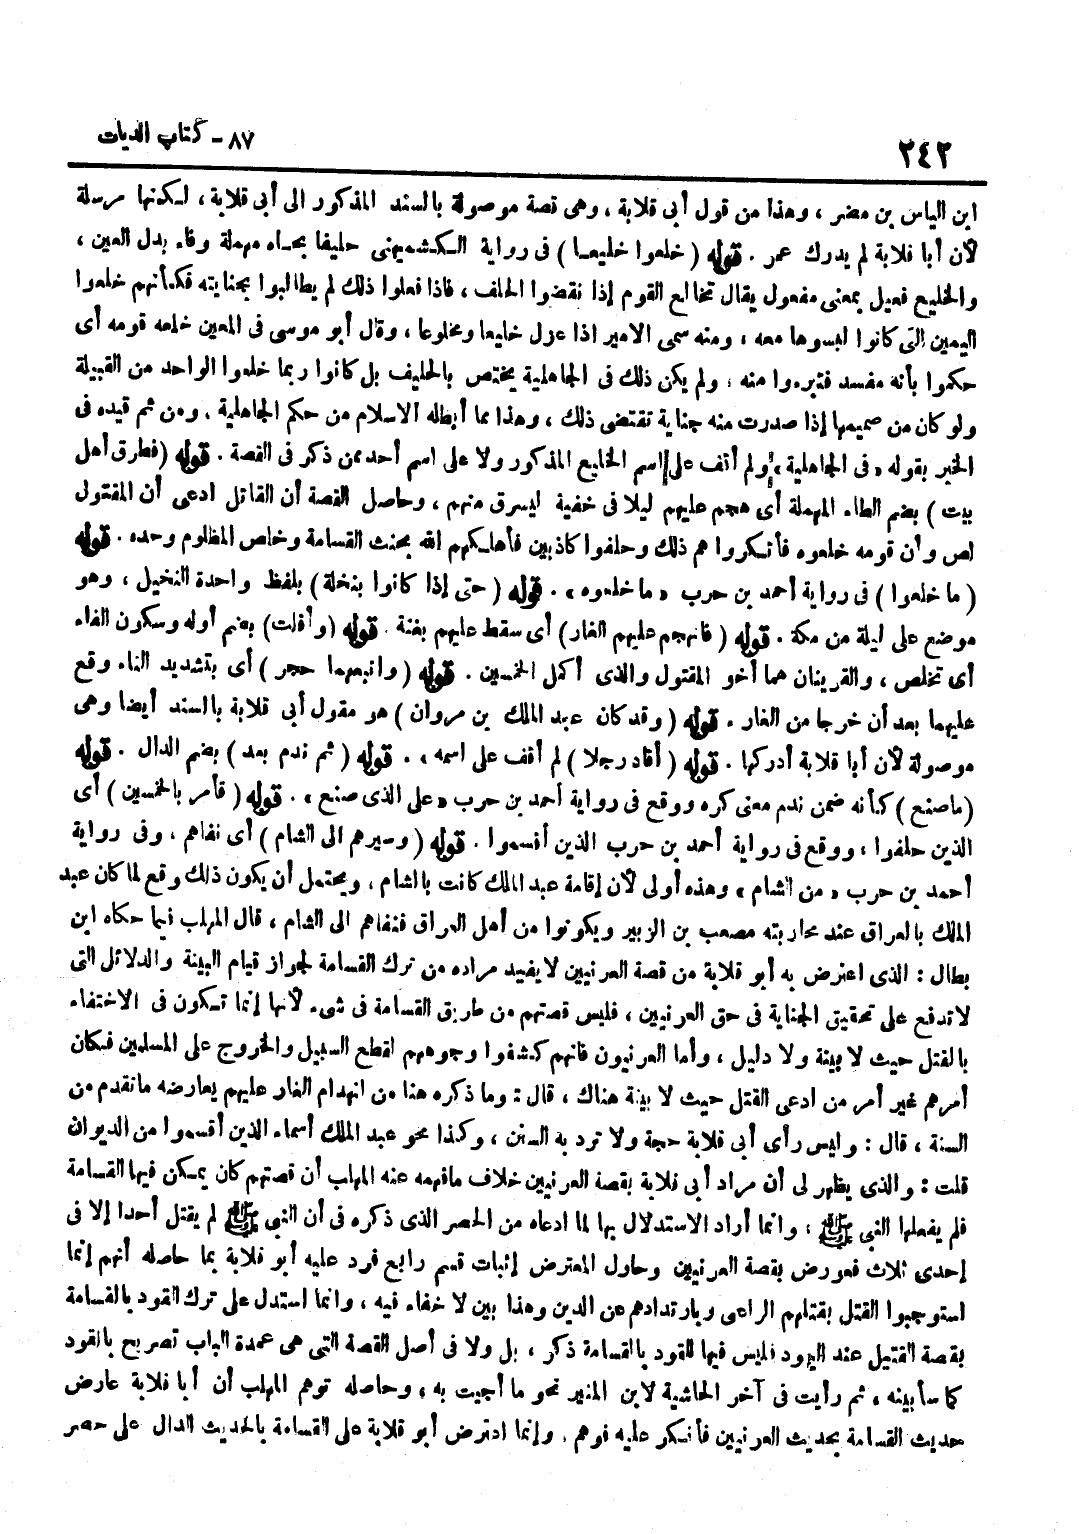 ٢٤٢
٨٧ - كتاب الديات
ابن الياس بن مضر ، وهذا من قول أبى قلابة ، وهى قصة موصولة بالسند المذكور الى أبى قلابة ، لـكنها مرسلة
لأن أبا قلابة لم يدرك عمر . قوله ( خلعوا خليعـا ) فى رواية الـكشميهنى حليفا بحـاء مهملة وفاء بدل العين ،
والخليع فعيل بمعنى مفعول يقال تخالع القوم إذا نقضوا الحلف ، فاذا فعلوا ذلك لم يطالبوا بجنايته فكأنهم خلعوا
اليمين التى كانوا لبسوها معه ، ومنه سمى الامير اذا عزل خليعا ومخلوعا ، وقال أبو موسى فى المعين خلعه قومه أى
حكموا بأنه مفسد فتبرءوا منه ، ولم يكن ذلك فى الجاهلية يختص بالحليف بل كانوا ربما خلعوا الواحد من القبيلة
ولو كان من صميمها إذا صدرت منه جناية تقتضى ذلك ، وهذا مما أبطله الاسلام من حكم الجاهلية ، ومن ثم قيده فى
الخبر بقوله « فى الجاهلية » ولم أقف على اسم الخليع المذكور ولا على اسم أحد ممن ذكر فى القصة . قوله ( فطرق أهل
بيت ) بضم الطاء المهملة أى هجم عليهم ليلا فى خفية ليسرق منهم ، وحاصل القصة أن القاتل ادعى أن المقتول
لص وأن قومه خلعوه فأنـكروا هم ذلك وحلفوا كاذبين فأهلـكهم الله بحنث القسامة وخلص المظلوم وحده . قوله
( ما خلعوا ) فى رواية أحمد بن حرب « ما خلعوه » . قوله ( حتى إذا كانوا بنخلة ) بلفظ واحدة النخيل ، وهو
موضع على ليلة من مكة . قوله ( فانهجم عليهم الغار ) أى سقط عليهم بغتة . قوله ( وأفلت ) بضم أوله وسكون الفاء
أى تخلص ، والقرينان هما أخو المقتول والذى أكمل الخمسين . قوله ( واتبعهما حجر ) أى بتشديد التاء وقع
عليهما بعد أن خرجا من الغار . قوله ( وقد كان عبد الملك بن مروان ) هو مقول أبى قلابة بالسند أيضا وهى
موصولة لأن أبا قلابة أدركها . قوله ( أقاد رجلا ) لم أقف على اسمه . قوله ( ثم ندم بعد ) بضم الدال . قوله
( ما صنع ) كأنه ضمن ندم معنى كره ووقع فى رواية أحمد بن حرب « على الذى صنع » . قوله ( فأمر بالخمسين ) أى
الذين حلفوا ، ووقع فى رواية أحمد بن حرب الذين أقسموا . قوله ( وسيرهم الى الشام ) أى نفاهم ، وفى رواية
أحمد بن حرب « من الشام » وهذه أولى لأن إقامة عبد الملك كانت بالشام ، ويحتمل أن يكون ذلك وقع لما كان عبد
الملك بالعراق عند محاربته مصعب بن الزبير ويكونوا من أهل العراق فنفاهم الى الشام ، قال المهلب فيما حكاه ابن
بطال : الذى اعترض به أبو قلابة من قصة العرنيين لا يفيد مراده من ترك القسامة لجواز قيام البينة والدلائل التى
لا تدفع على تحقيق الجناية فى حق العرنيين ، فليس قصتهم من طريق القسامة فى شىء لأنها إنما تـكون فى الاختفاء
بالقتل حيث لا بينة ولا دليل ، وأما العرنيون فانهم كشفوا وجوههم لقطع السبيل والخروج على المسلمين فكان
أمرهم غير أمر من ادعى القتل حيث لا بينة هناك ، قال : وما ذكره هنا من انهدام الغار عليهم يعارضه ما تقدم من
السنة ، قال : وليس رأى أبى قلابة حجة ولا ترد به السنن ، وكذا محو عبد الملك أسماء الذين أقسموا من الديوان
قلت : والذى يظهر لى أن مراد أبى قلابة بقصة العرنيين خلاف ما فهمه عنه المهلب أن قصتهم كان يمـكن فيها القسامة
فلم يفعلها النبى ﷺ ، وانما أراد الاستدلال بها لما ادعاه من الحصر الذى ذكره فى أن النبى ﷺ لم يقتل أحدا إلا فى
إحدى ثلاث فعورض بقصة العرنيين وحاول المعترض إثبات قسم رابع فرد عليه أبو قلابة بما حاصله أنهم إنما
استوجبوا القتل بقتلهم الراعى وبارتدادهم عن الدين وهذا بين لا خفاء فيه ، وانما استدل على ترك القود بالقسامة
بقصة القتيل عند اليهود فليس فيها للقود بالقسامة ذكر ، بل ولا فى أصل القصة التى هى عمدة الباب تصريح بالقود
كما سأبينه ، ثم رأيت فى آخر الحاشية لابن المنير نحو ما أجبت به ، وحاصله توهم المهلب أن أبا قلابة عارض
حديث القسامة بحديث العرنيين فأنـكر عليه فوهم ، وإنما اعترض أبو قلابة على القسامة بالحديث الدال على حصر